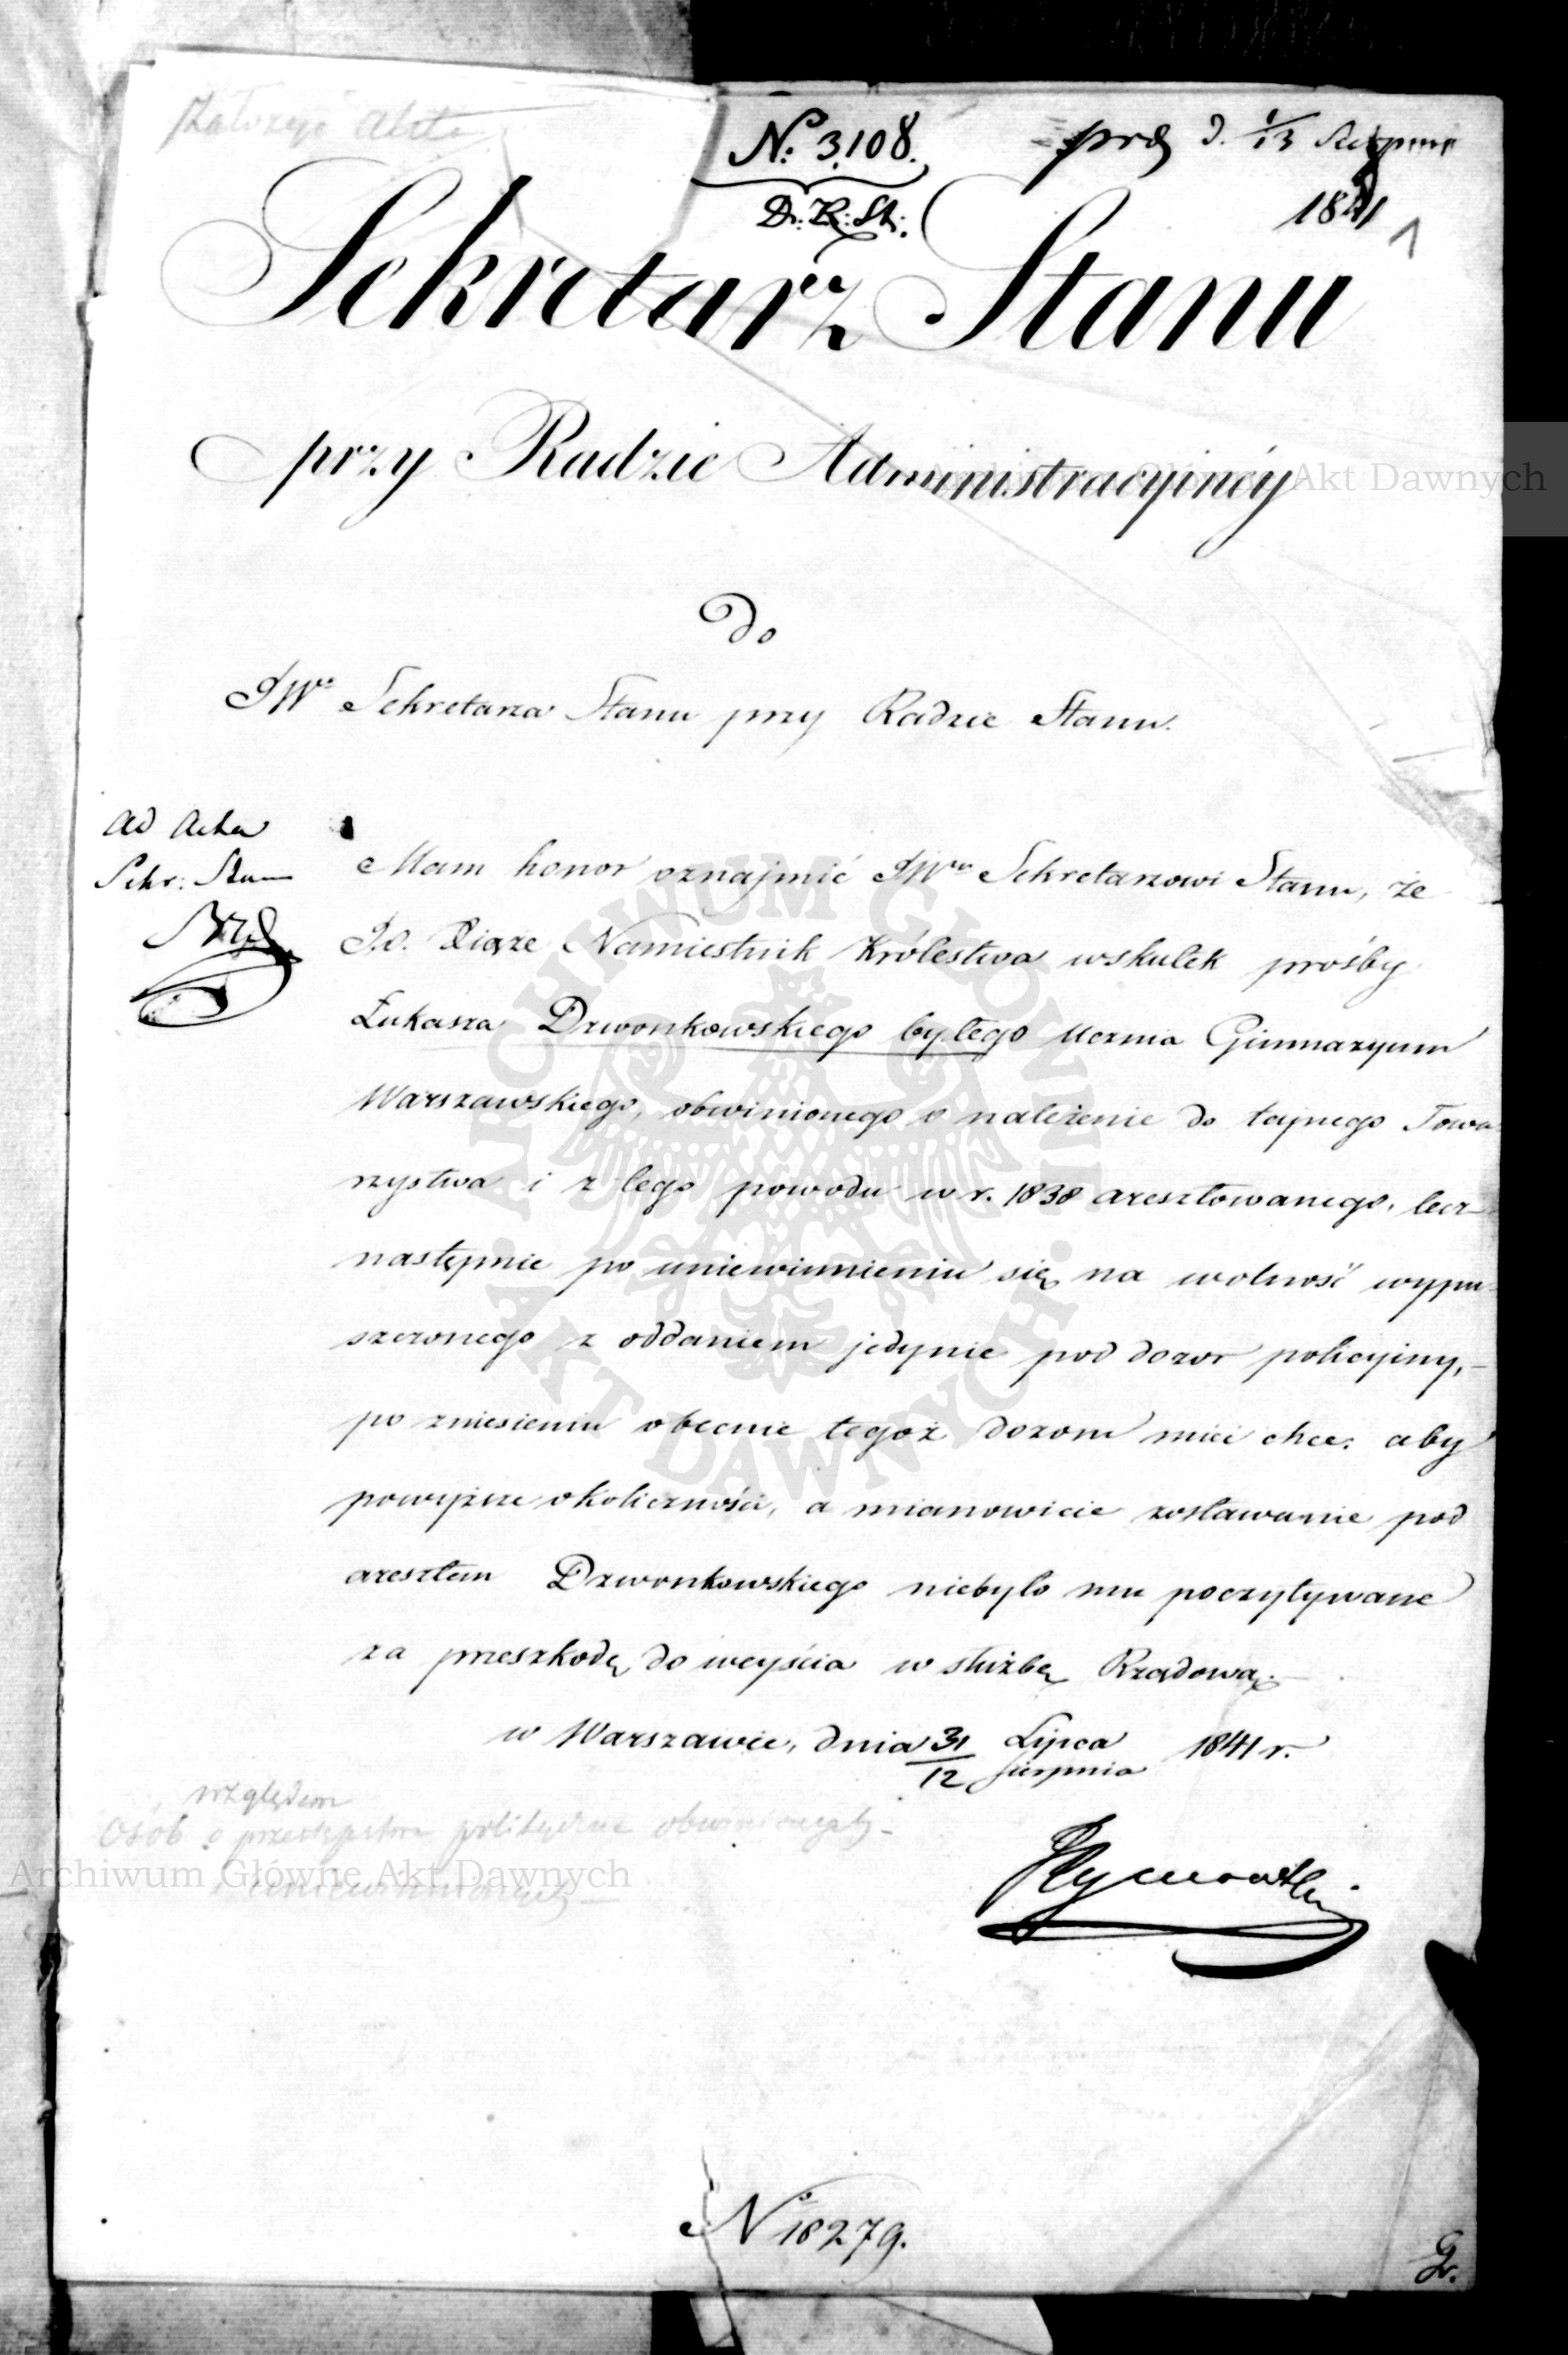 Założyć Akta
N: 3,108.
D.R.St:
1/13 Sierpnia
1841
1
Sekretarz Stanu
przy Radzie Administracyinéy
do
JWo Sekretarza Stanu przy Radzie Stanu.
Ad Acta
Sekr: Stanu
Mam honor oznajmić JWmu Sekretarzowi Stanu, że
J.O. Xiąże Namiestnik Królestwa wskutek prośby
Łukasza Dzwonkowskiego byłego Ucznia Gimnazyum
Warszawskiego, obwinionego o należenie do taynego Towa-
rzystwa i z tego powodu w r. 1838 aresztowanego, lecz
następnie po uniewinnieniu się na wolność wypu-
szczonego z oddaniem jedynie pod dozor policyiny,-
po zniesieniu obecnie tegoż dozoru mieć chce, aby
powyższe okoliczności, a mianowicie zostawanie pod
aresztem Dzwonkowskiego niebyło mu poczytywane
za przeszkodę do weyścia w służbę Rządową.-
w Warszawie, dnia 31/12 Lipca/Sierpnia 1841 r.
względem
Osób o przestępstwa polityczne obwinionych-
uniewinnionych
Archiwum Główne Akt Dawnych
N 18279.
Archiwum Główne Akt Dawnych
ARCHIWUM GŁÓWNE AKT DAWNYCH